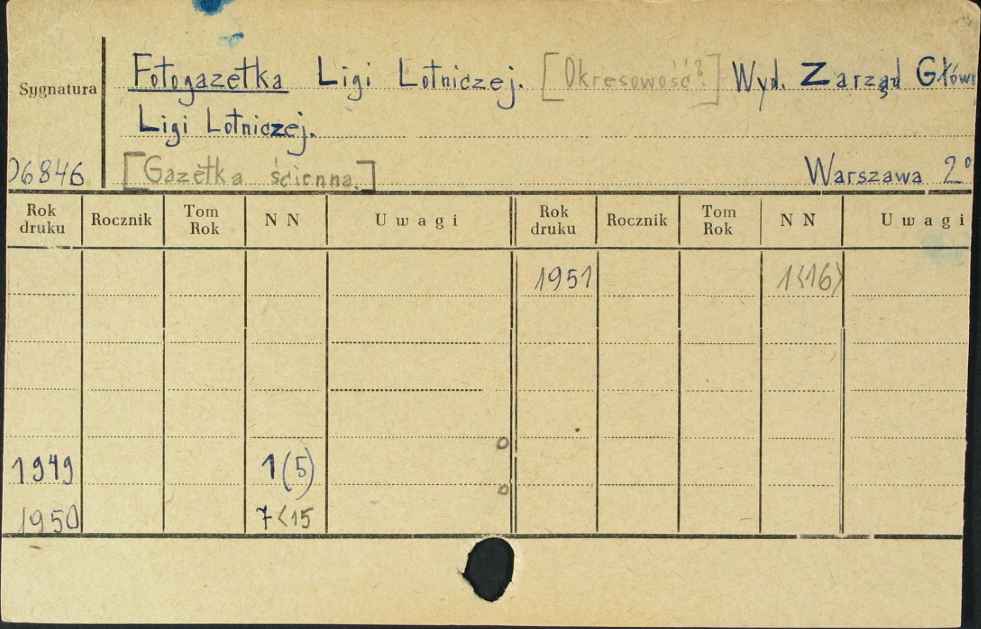 Sygnatura Fotogazetka Ligi Lotniczej. [Okresowość?] Wyd. Zarząd Główn
Ligi Lotniczej.
06846 [Gazetka ścienna.] Warszawa 2°
Rok druku Rocznik Tom Rok NN Uwagi Rok druku Rocznik Tom Rok NN Uwagi
1951 1<16>
1949 1(5)
1950 7<15